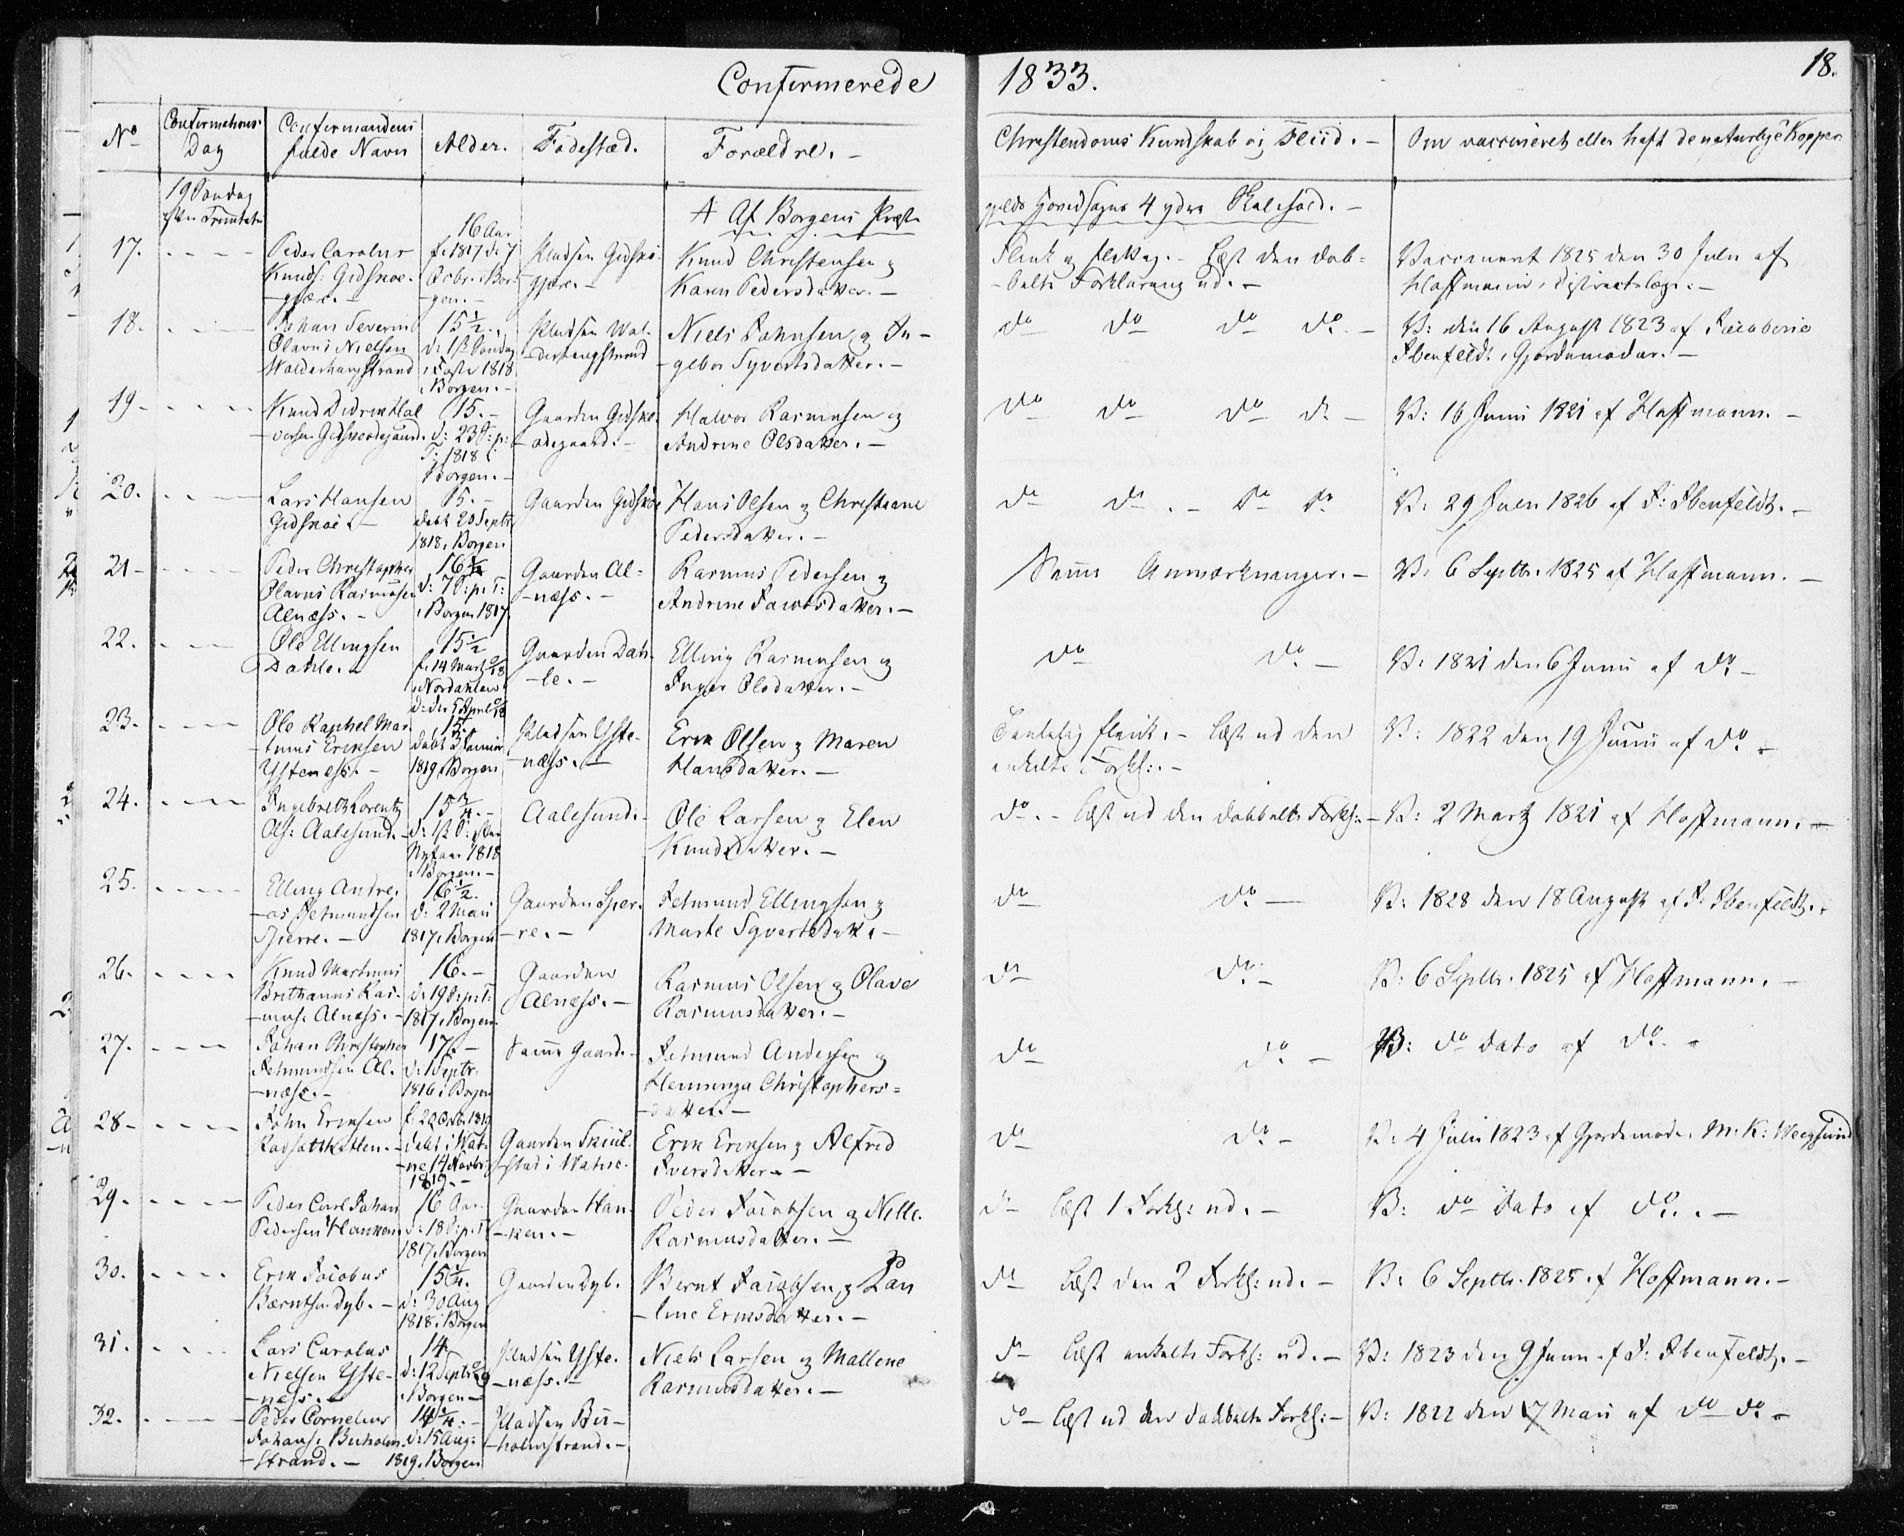 Confirmerede 1833.
18.
No
Confirmations-
Dag
Confirmandens
fulde Navn
Alder.
Fødestæd.
Forældre. -
Christendoms Kundskab og Fliid. -
Om vaccineret eller haft de naturlige Kopper
19 Søndag
efter Trinitatis
A Af Borgens Præste
gjelds Hovedsogns 4 ydre
17.
Peder Carolus
Knuds: Gidskoe-
gjære. -
16 Aar
f. 1817 d: 7
Octbr. i Bor-
gen. -
Pladsen Gidskoe-
gjære. -
Knud Christensen og
Karen Pedersdatter. -
Flink og flittig. - Læst den dob-
belte Forklaring ud. -
Vaccineret 1825 den 30 Julii af
Hoffmann, Districtslæge. -
18.
Johan Severin
Olavus Nielsen
Walderhaugstrand
15 1/2.
d: 1st Søndag
i Faste 1818
i Borgen. -
Pladsen Wal-
derhaugstrand
Niels Johnsen og In-
geborg Syvertsdatter. -
do do do do -
V: den 16 August 1823 af Jacobine
Ibenfeldt, Gjordemoder. -
19
Knud Didrik Hal
vorsen Gidskeødegaard
15. -
d: 23 S: p:
T: 1818 i
Borgen. -
Gaarden Gidskoe-
ødegaard. -
Halvor Rasmusen og
Andrine Olsdatter. -
do do do do -
V: 16 Junii 1821 af Hoffmann. -
20.
Lars Hansen
Gidskoe. -
15. -
døbt 20 Septr.
1818, Borgen
Gaarden Gidskoe
Hans Olsen og Christiane
Pedersdatter. -
do do - do do
V: 29 Julii 1826 af J: Ibenfeldt. -
21
Peder Christopher
Olavus Rasmusen
Alnæss. -
16 1/4
d: 7 S: p: T:
i Borgen 1817.
Gaarden Al-
næss. -
Rasmus Pedersen og
Andrine Jacobsdatter. -
Samme Anmærkninger. -
V: 6 Septbr. 1825 af Hoffmann. -
22.
Ole Ellingsen
Dahle. -
15 1/2
f. 14 Marts 18
i Nordahlen
d: den 5 April 18
Gaarden Dah-
le. -
Elling Rasmusen og
Inger Olsdatter. -
do do -
V: 1821 den 6 Junii af do -
23.
Ole Raphel Mar-
tinus Eriksen
Ystenæss. -
15.
døbt 3 Januar
1819, Borgen
Pladsen Yste-
næss. -
Erik Olsen og Maren
Hansdatter. -
Temlelig flink. - Læst ud den
enkelte Forkl: -
V: 1822 den 19 Junii af do -
24.
Ingebreth Lorentz
Ols: Aalesund. -
15 3/4. -
d: 1st S: efter
Nytaar 1818
i Borgen. -
Aalesund. -
Ole Larsen og Elen
Knudsdatter. -
do - Læst ud den dobbelte Forkl: -
V: 2 Martz 1821 af Hoffmann. -
25.
Elling Andre-
as Jetmundsen
Spierre. -
16 1/2.
d: 2 Maii
1817, Borgen
Gaarden Sper-
re. -
Jetmund Ellingsen og
Marte Syvertsdatter -
do do -
V: 1828 den 18 August af J: Ibenfeldt. -
26.
Knud Martinus
Brithanus Ras-
mus: Alnæss. -
16. -
d: 19 S: p: T:
1817, Borgen
Gaarden
Alnæss. -
Rasmus Olsen og Olave
Rasmusdatter. -
do do -
V: 6 Septbr. 1825 af Hoffmann. -
27.
Johan Christopher
Jetmundsen Al-
næss. -
17. -
d: 1 Septr.
1816 i Borgen
Samme Gaard. -
Jetmund Andersen og
Henninga Christophers-
datter. -
do do -
V: do Dato af do. -
28
John Eriksen
Radsættkatlen. -
døbt i Wat-
ne 14
1819. -
Gaarden Skiul-
stad i Watne.
Erik Eriksen og Alfred
Iversdatter. -
do do -
V: 4 Julii 1823 af Gjordemoder M. K: Wegsund
29.
Peder Carl Johan
Pedersen Hanken
16 Aar.
d: 18 S: p: T:
1817, Borgen
Gaarden Han-
ken. -
Peder Jacobsen og Nille
Rasmusdatter. -
do Læst 1 Forkl: ud. -
V: do Dato af do. -
30.
Erik Jacobus
Bærntsen Dyb. -
15 1/4.
d: 30 Aug
1818 i Borgen
Gaarden Dyb.
Bernt Jacobsen og Pau
line Ericsdatter. -
do Læst den 2 Forkl: ud. -
V: 6 Septbr. 1825 af Hoffmann. -
31.
Lars Carolus
Nielsen Yste-
næss. -
14.
d: 12 Septr 19
i Borgen -
Pladsen Yste-
næss. -
Niels Larsen og Mallene
Rasmusdatter. -
do - Læst enkelte Forkl: ud. -
V: 1823 den 9 Junii af J: Ibenfeldt. -
32.
Peder Cornelius
Johans: Buholm-
strand. -
14 1/4. -
d: 15 Aug:
1819, Borgen
Pladsen Bu-
holmstrand. -
do - Læst ud den dobbelte Forkl: -
V: 1822 den 7 Maii af do do -